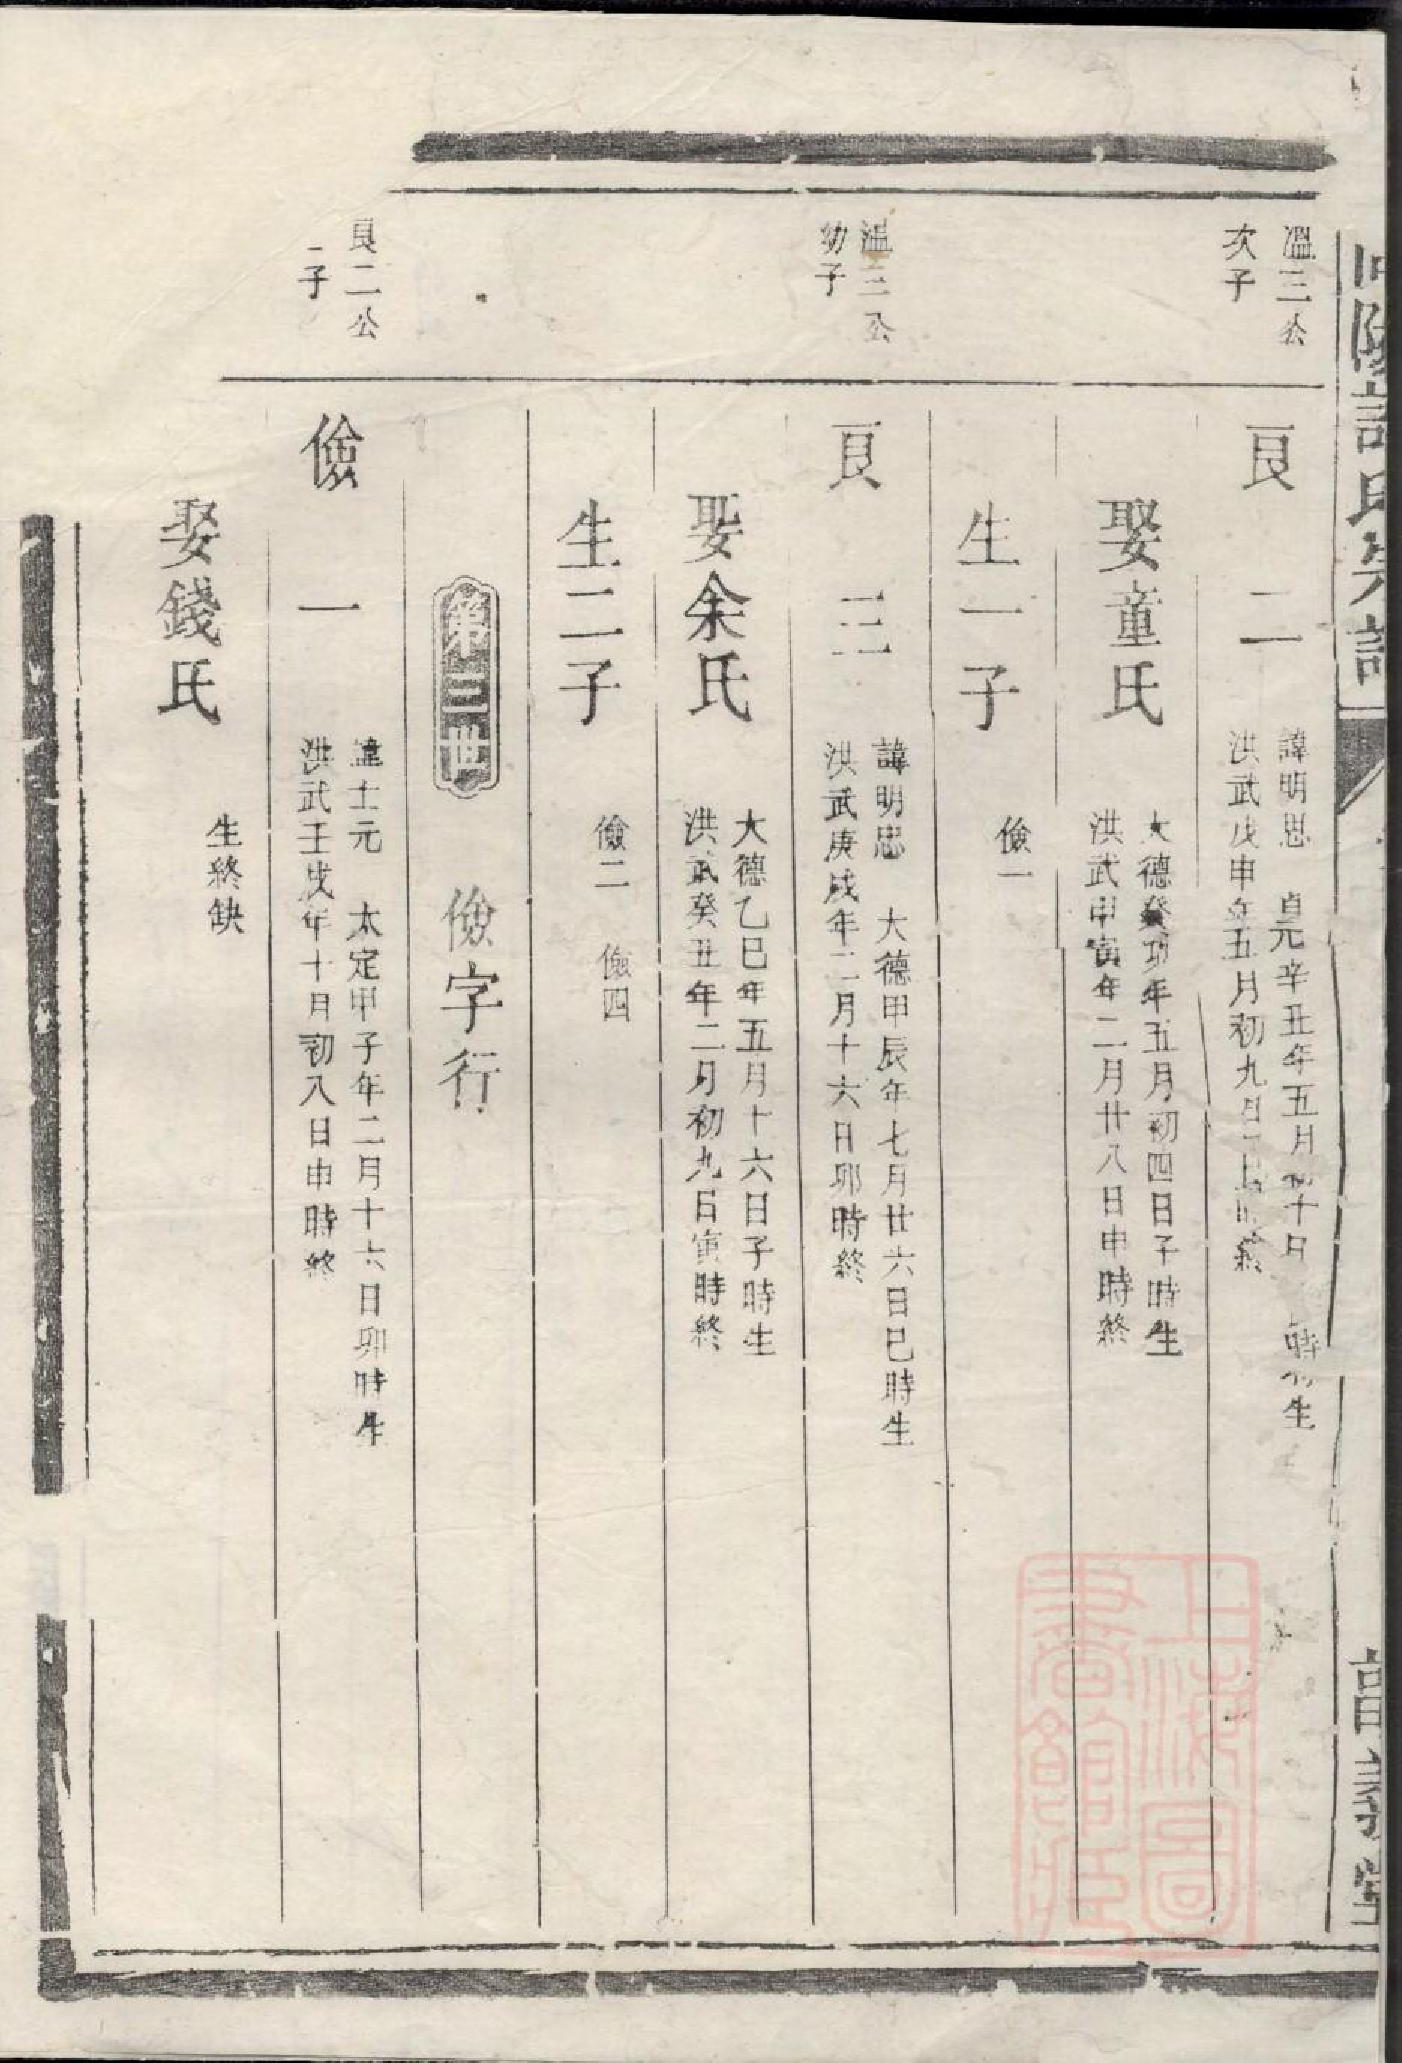 許氏宗譜
義堂
溫三公
次子
良二
諱明思 貞元辛丑年五月初十日時生
洪武戊申年五月初九日時終
娶童氏
大德癸卯年五月初四日子時生
洪武甲寅年二月廿八日申時終
生一子
儉一
溫三公
幼子
良三
諱明忠 大德甲辰年七月廿六日巳時生
洪武庚戌年二月十六日卯時終
娶余氏
大德乙巳年五月十六日子時生
洪武癸丑年二月初九日寅時終
生二子
儉二 儉四
第三世 儉字行
良二公
子
儉一
諱士元 太定甲子年二月十六日卯時生
洪武壬戌年十月初八日申時終
娶錢氏
生終缺
上海圖
書館藏